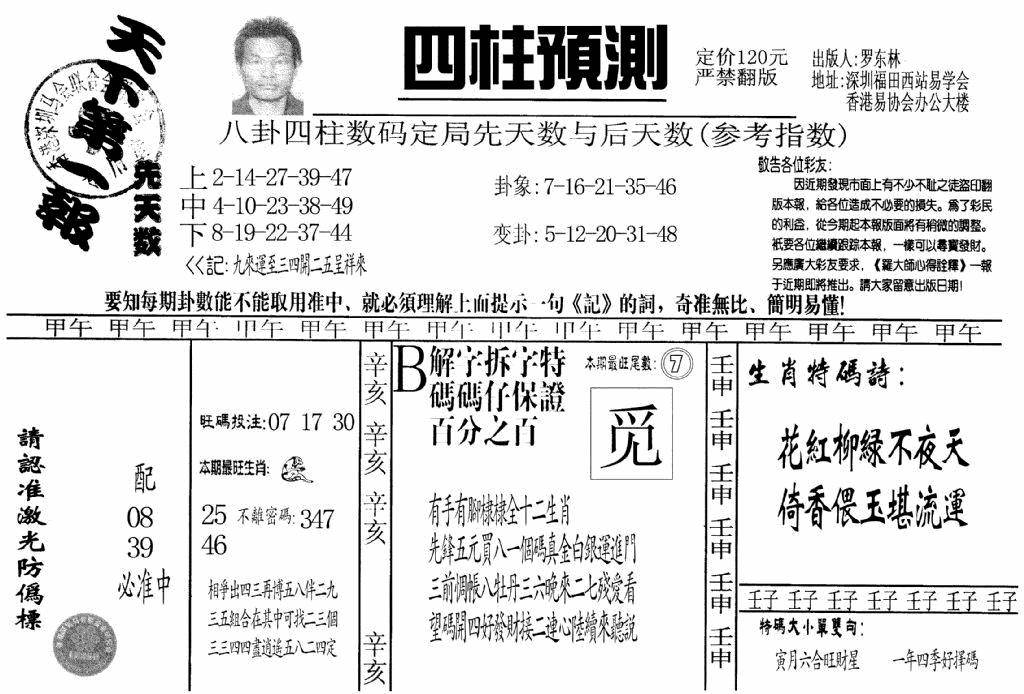 天下第一報
四柱預測
定价120元
严禁翻版
出版人:罗东林
地址:深圳福田西站易学会
香港易协会办公大楼
八卦四柱数码定局先天数与后天数(参考指数)
先天数
上2-14-27-39-47
中4-10-23-38-49
下8-19-22-37-44
<<記:九來運至三四開二五呈祥來
卦象:7-16-21-35-46
变卦:5-12-20-31-48
敬告各位彩友:
因近期發現市面上有不少不耻之徒盜印翻
版本報,給各位造成不必要的損失。為了彩民
的利益,從今期起本報版面將有稍微的調整。
衹要各位繼續跟踪本報,一樣可以尋寶發財。
另應廣大彩友要求,《羅大師心得詮釋》一報
于近期即將推出。請大家留意出版日期!
要知每期卦數能不能取用准中、就必須理解上面提示一句《記》的詞,奇准無比、簡明易懂!
甲午 甲午 甲午 甲午 甲午 甲午 甲午 甲午 甲午 甲午 甲午 甲午 甲午 甲午 甲午
請認准激光防僞標
配
08
39
必准中
旺碼投注:07 17 30
本期最旺生肖:
25 不離密碼:347
46
相爭出四三再博五八伴二九
三五組合在其中可找二三個
三三四四盡逍遙五八二四定
辛亥 辛亥 辛亥 辛亥
B解字拆字特
碼碼仔保證
百分之百
本期最旺尾數:7
觅
有手有腳棣棣全十二生肖
先鋒五元買八一個碼真金白銀運進門
三前惆帳八牡丹三六晚來二七殘愛看
望碼開四好發財接二連心陸續來聽説
壬申 壬申 壬申 壬申 壬申 壬申
生肖特碼詩:
花紅柳緑不夜天
倚香偎玉堪流連
壬子 壬子 壬子 壬子 壬子 壬子 壬子
特碼大小單雙句:
寅月六合旺財星 一年四季好擇碼